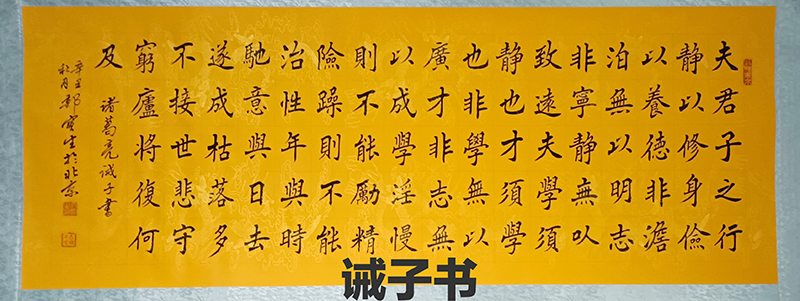 夫君子之行
静以修身儉
以養德非澹
泊無以明志
非寧静無以
致遠夫學須
静也才須學
也非學無以
廣才非志無
以成學淫慢
則不能勵精
險躁則不能
治性年與時
馳意與日去
遂成枯落多
不接世悲守
窮廬將復何
及
諸葛亮诫子書
辛丑秋月生於北京
诫子书